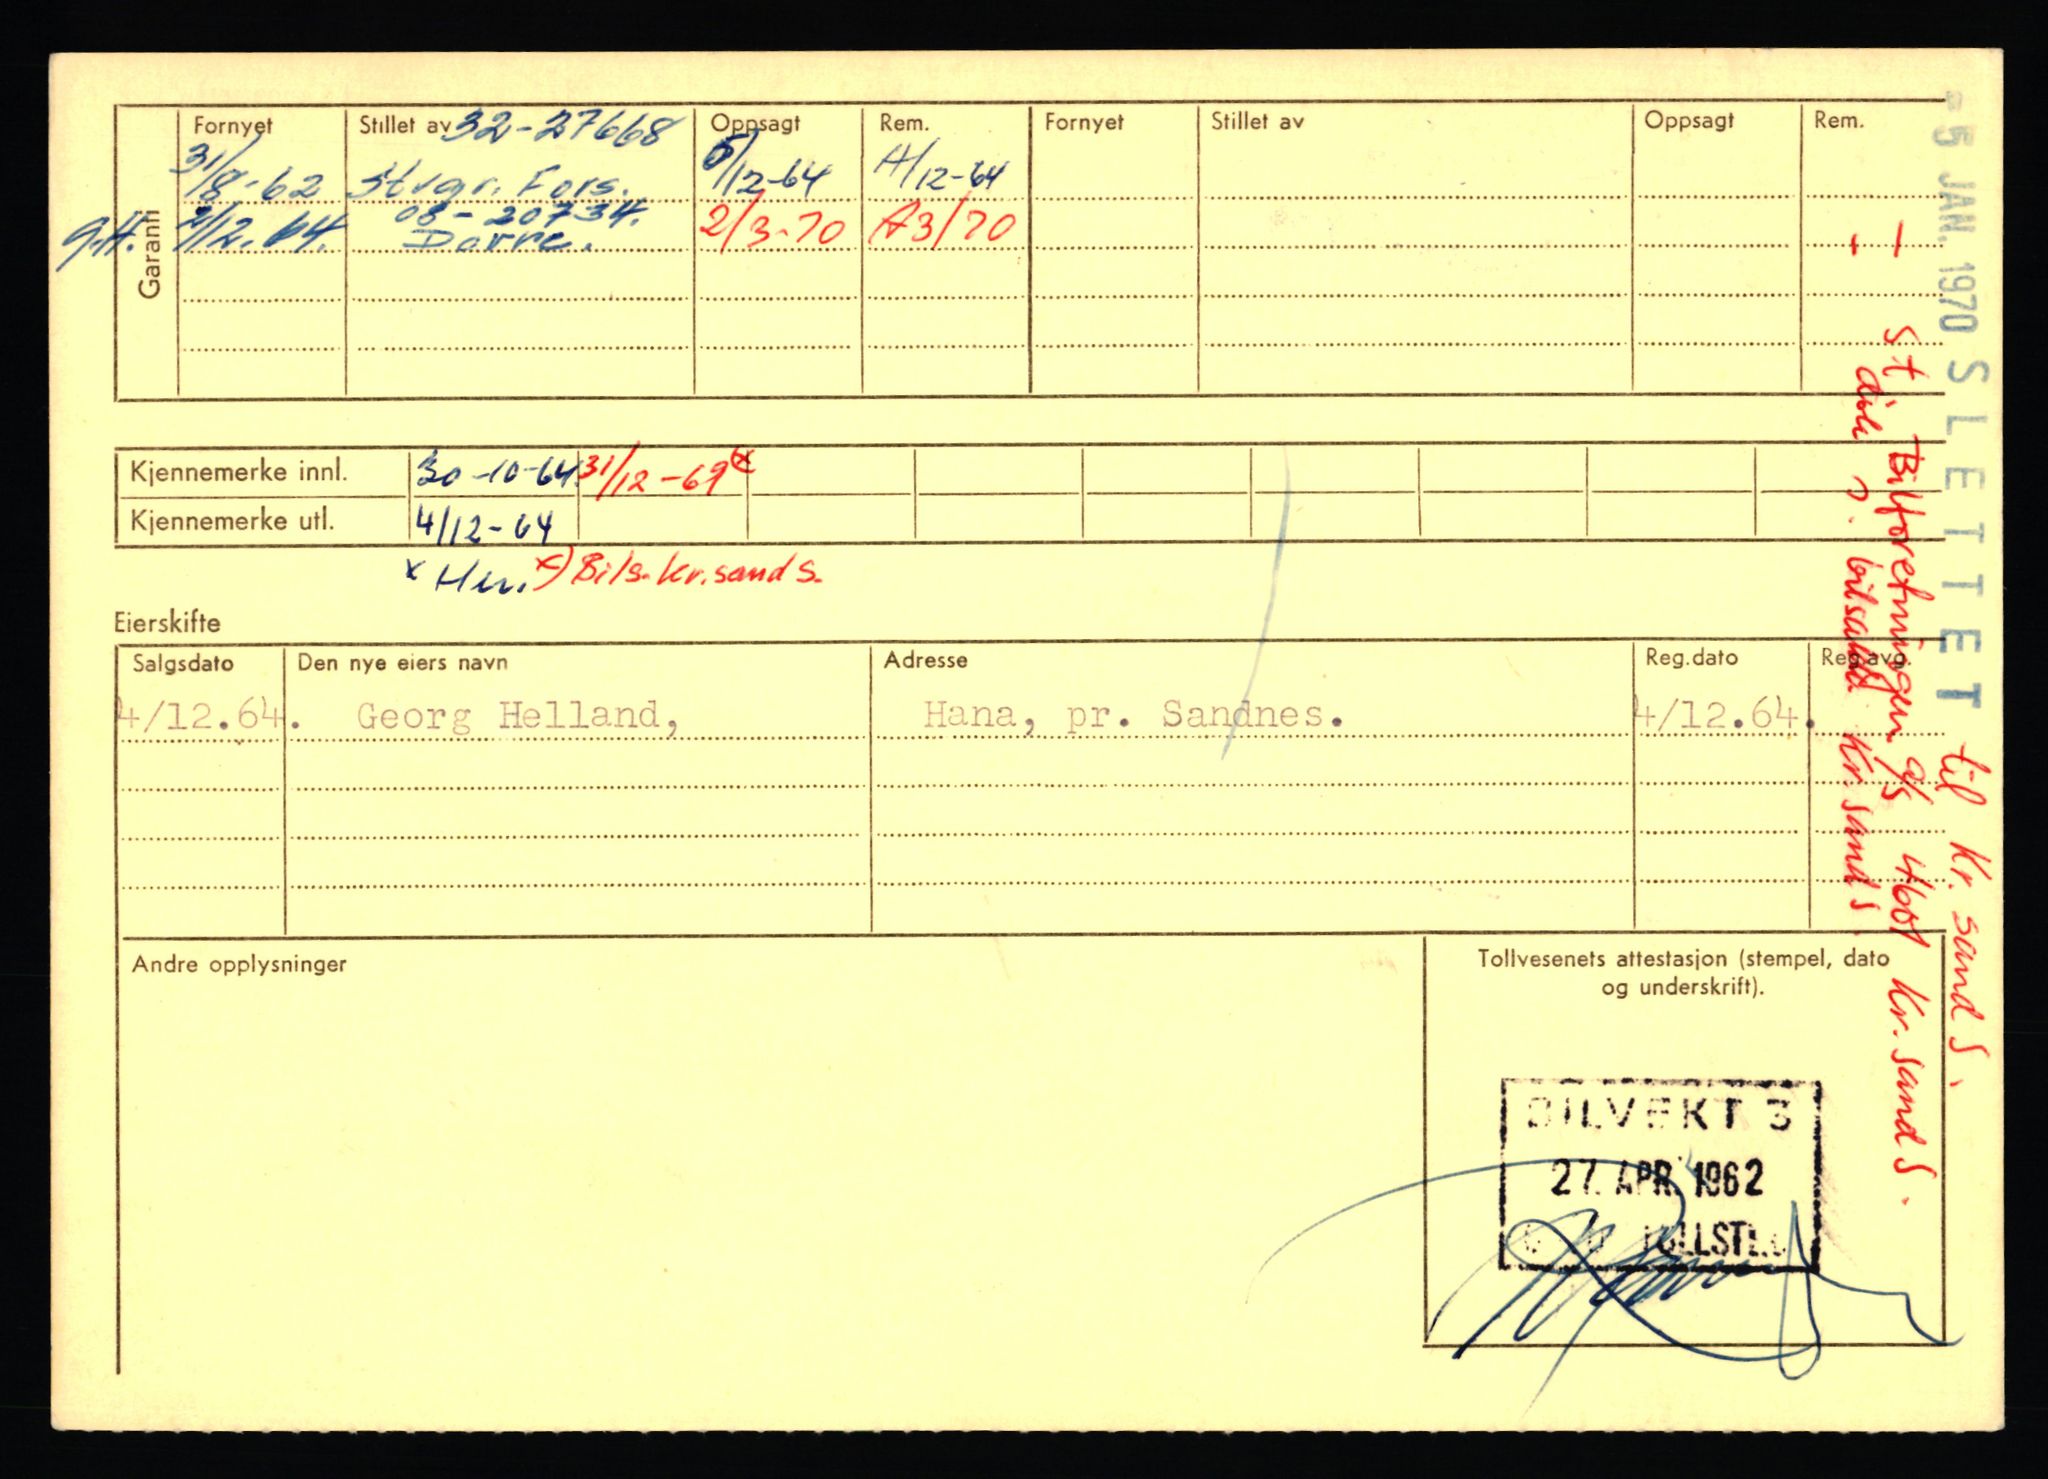 Garanti
Fornyet Stillet av 32-27668 Oppsagt Rem. Fornyet Stillet av Oppsagt Rem.
31/8-62 Stvgr. Fors. /12-64 A/12-64
08-20734.
g.H. 2/12.64. Dovre. 2/3-70 A3/70
Kjennemerke innl. 30-10-64 31/12-69 x
Kjennemerke utl. 4/12-64
x x) Bils. Kr.sand S.
Eierskifte
Salgsdato Den nye eiers navn Adresse Reg.dato Reg.avg.
4/12.64. Georg Helland, Hana, pr. Sandnes. 4/12.64.
Andre opplysninger
Tollvesenets attestasjon (stempel, dato
og underskrift).
BILVEKT 3
27. APR. 1962
- 5 JAN. 1970 SLETTET til Kr. sand S.
st Bilforretningen a/s Kr. sand S.
bilsakk. Kr sand S.